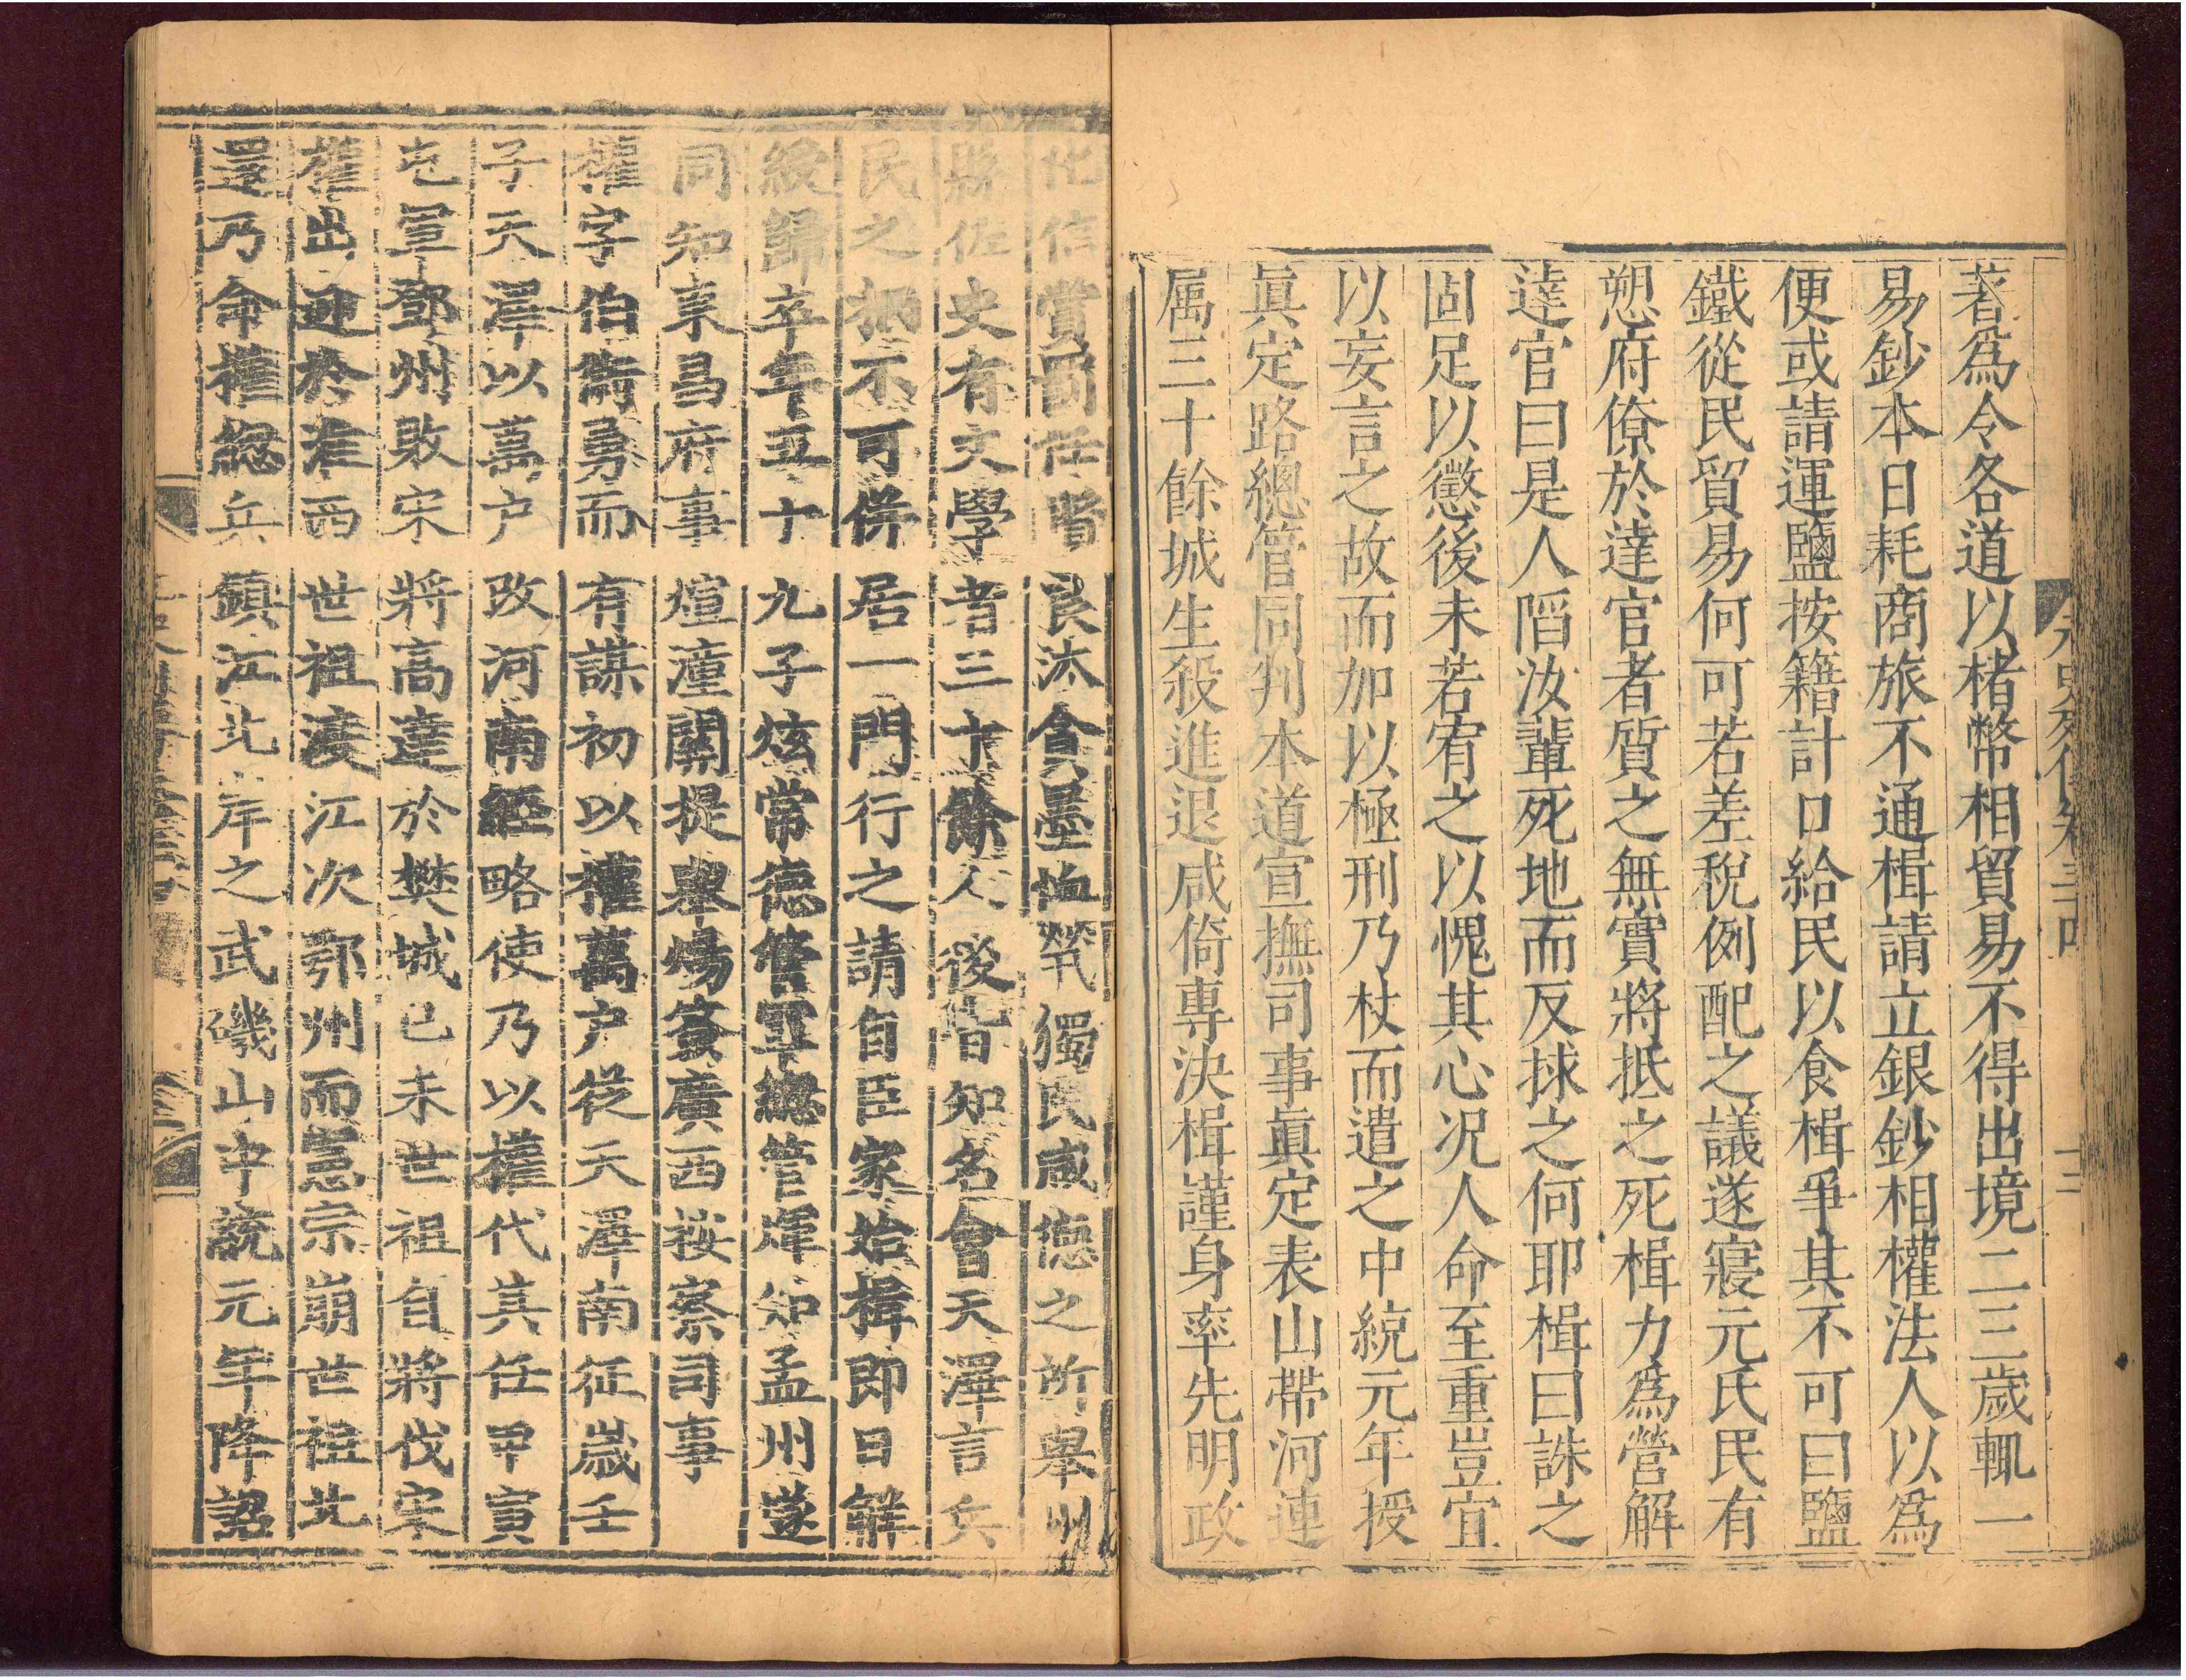 著爲令各道以楮幣相貿易不得出境二三歲輒一
易鈔本日耗商旅不通楫請立銀鈔相權法人以爲
便或請運鹽按籍計口給民以食楫爭其不可曰鹽
鐵從民貿易何可若差稅例配之議遂寢元氏民有
愬府僚於達官者質之無實將抵之死楫力爲營解
達官曰是人陷汝輩死地而反捄之何耶楫曰誅之
固足以懲後未若宥之以愧其心况人命至重豈宜
以妄言之故而加以極刑乃杖而遣之中統元年授
眞定路總管同判本道宣撫司事眞定表山帶河連
属三十餘城生殺進退咸倚專決楫謹身率先明政
化信賞罰任賢良汰貪墨恤煢獨民咸德之所舉州
縣佐史有文學者三十餘人後皆知名會天澤言兵
民之柄不可併居一門行之請自臣家始楫即日解
綬歸卒年五十九子炫常德管軍總管煇知孟州遂
同知東昌府事煊潼關提舉煬僉廣西按察司事
權字伯衡勇而有謀初以權萬户從天澤南征歲壬
子天澤以萬户改河南經略使乃以權代其任甲寅
屯軍鄧州敗宋將高達於樊城己未世祖自將伐宋
權出迎於淮西世祖渡江次鄂州而憲宗崩世祖北
還乃命權總兵鎮江北岸之武磯山中統元年降詔